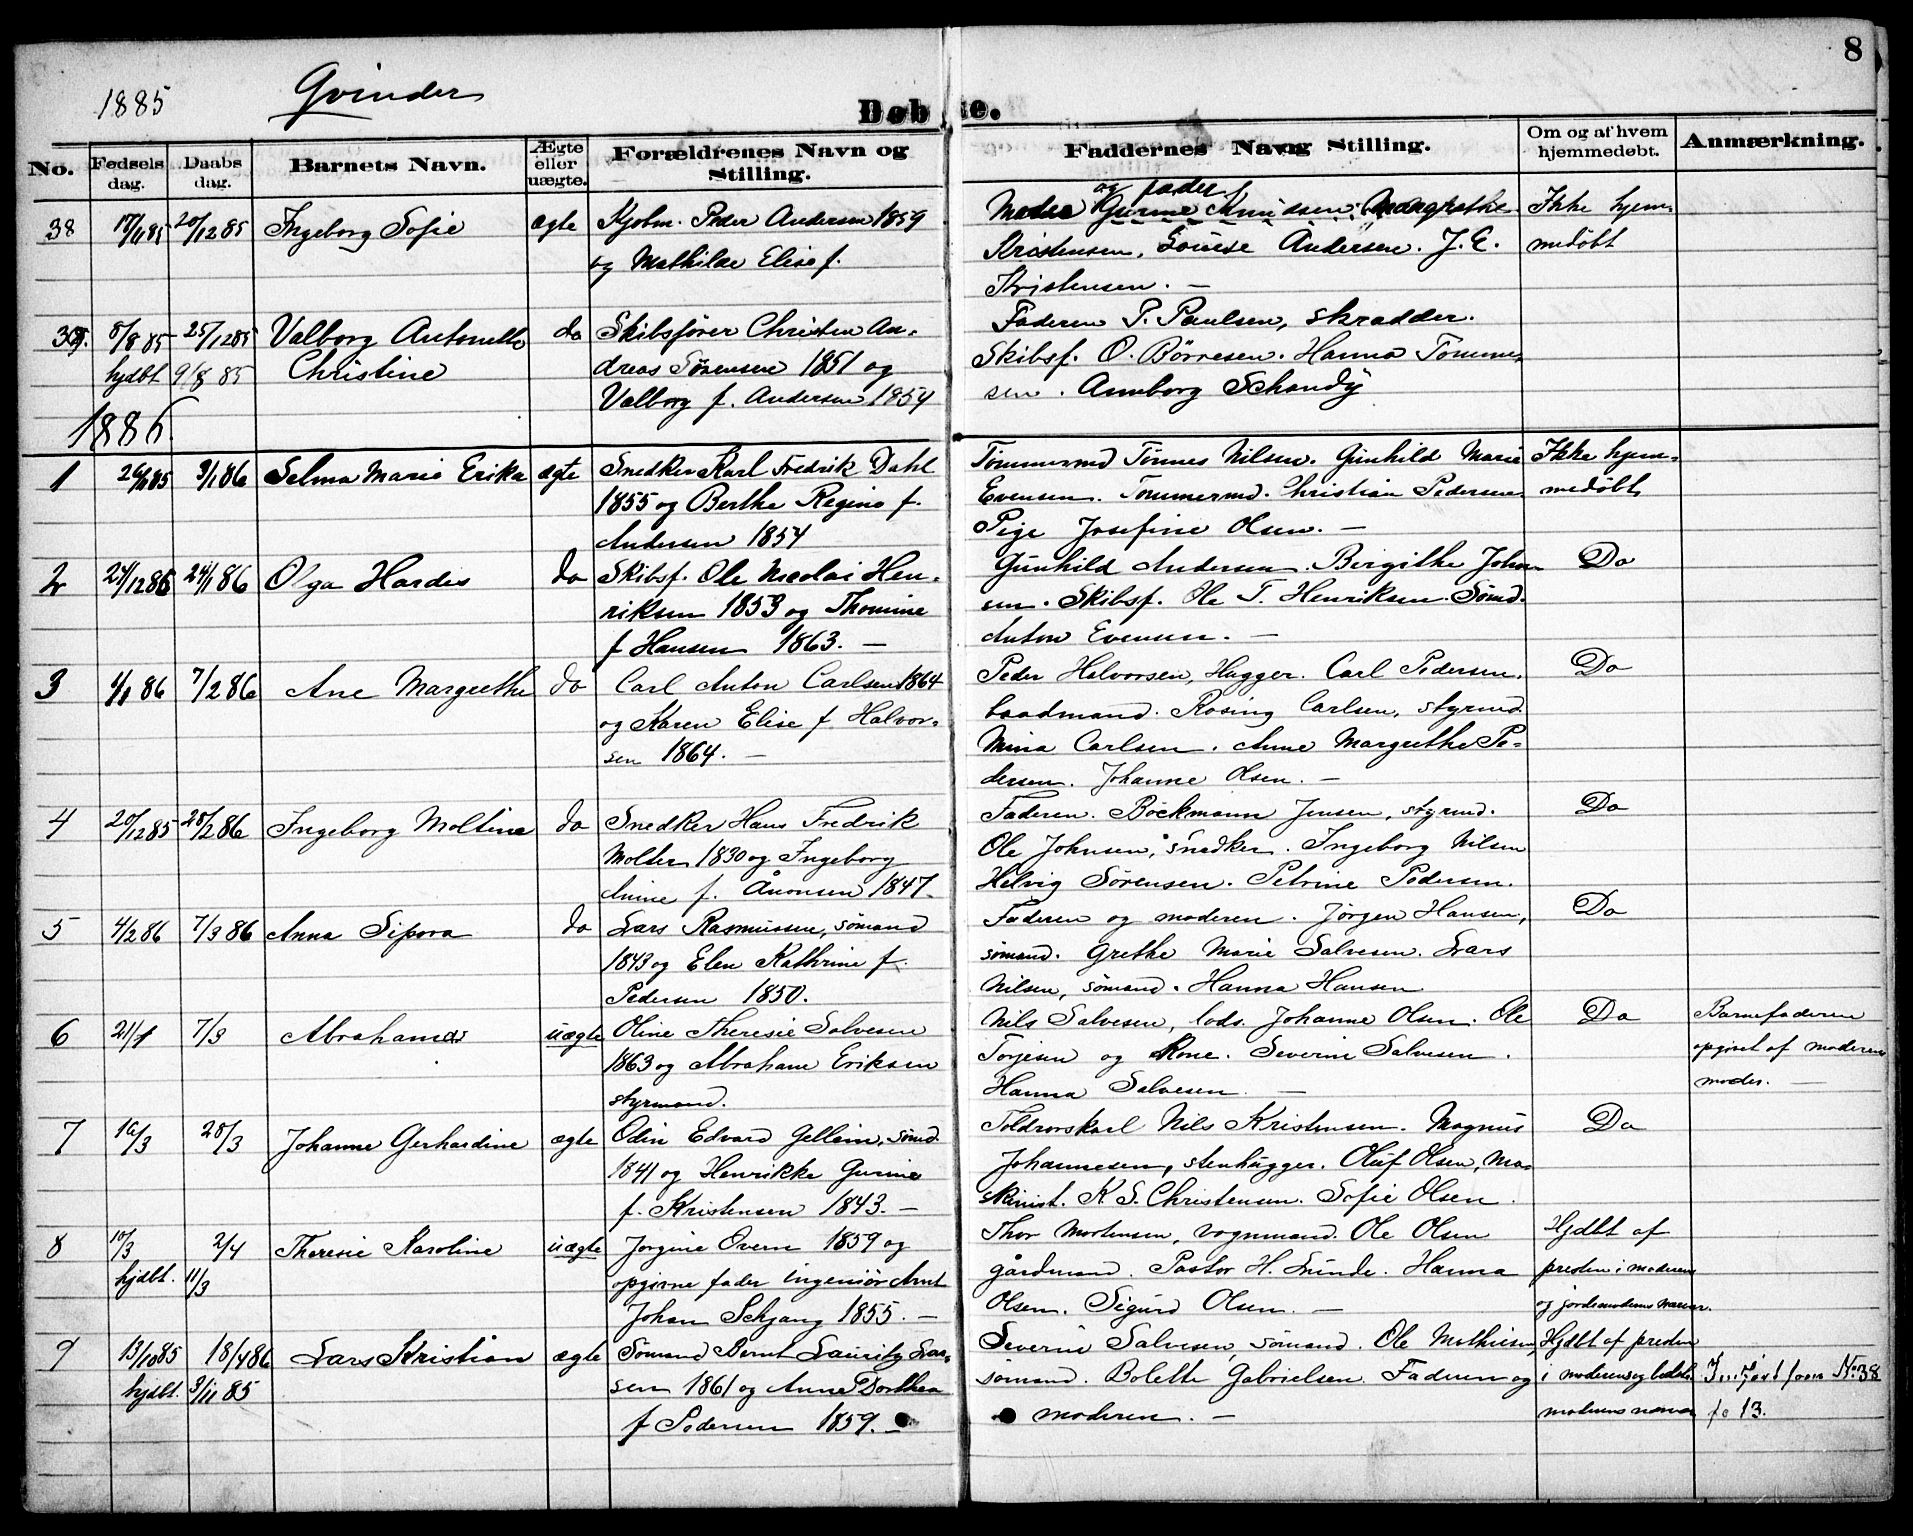 8
1885 Qvinder
Døbte.
No. Fødsels dag. Daabs dag. Barnets Navn. Ægte eller uægte. Forældrenes Navn og Stilling. Faddernes Navn og Stilling. Om og af hvem hjemmedøbt. Anmærkning.
38 20/12 85 Ingeborg Sofie ægte Peder Andersen 1859
og Mathilde Elise f.
og fader
Gurine Knudsen, Margrethe
Kristensen, Louise Andersen. J. E.
Kristensen. —
Ikke hjem-
medøbt
39. 8/8 85 25/12 85 Valborg Antonette do Skibsfører Christen An-
hjdbt 9/8 85 Christine dreas Sørensen 1851 og
Valborg f. Andersen 1854
Faderen P. Paulsen, skrædder.
Skibsf. O. Børresen. Hanna Tomme-
sen. Annborg Schandy
1886.
1 3/1 86 Selma Marie Erika ægte Snedker Karl Fredrik Dahl
1855 og Berthe Regine f.
Andersen 1854
Tømmermd Tønnes Nilsen. Gunhild Marie
Evensen. Tømmermd. Christian Pedersen
Pige Josefine Olsen. —
Ikke hjem-
medøbt
2 24/12 85 24/1 86 Olga Hardis do Skibsf. Ole Nicolai Hen-
riksen 1853 og Thomine
f Hansen 1863. —
Gunhild Andersen. Birgithe Johan-
sen. Skibsf. Ole T. Henriksen. Sømd.
Anton Evensen. —
Do
3 1/1 86 7/2 86 Ane Margrethe do Carl Anton Carlsen 1864
og Karen Elise f. Halvor-
sen 1864. —
Peder Halvorsen, Hugger. Carl Pedersen.
baadmand. Rosing Carlsen, styrmd.
Mina Carlsen. Anne Margrethe Pe-
dersen. Johanne Olsen. —
Do
4 20/12 85 28/2 86 Ingeborg Moltine do Snedker Hans Fredrik
Molter 1830 og Ingeborg
Anine f. Ånonsen 1847.
Faderen. Bøckmann Jensen, styrmd.
Ole Johnsen, snedker. Ingeborg Nilsen
Helvig Sørensen. Petrine Pedersen.
Do
5 4/2 86 7/3 86 Anna Sipora do Lars Rasmussen, sømand
1843 og Elen Kathrine f.
Pedersen 1850.
Faderen og moderen. Jørgen Hansen,
sømand. Grethe Marie Salvesen. Lars
Nilsen, sømand. Hanna Hansen
Do
6 21/1 7/3 uægte Oline Theresie Salvesen
1863 og Abraham Eriksen
styrmand.
Nils Salvesen, lods. Johanne Olsen. Ole
Torjesen og Kone. Severin Salvesen.
Hanna Salvesen —
Do
Barnefaderen
opgivet af moderens
moder. —
7 16/3 28/3 Johanne Gerhardine ægte Odin Edvard Gellein, sømd.
1841 og Henrikke Gurine
f. Kristensen 1843. —
Toldrorskarl Nils Kristensen. Magnus
Johannesen, stenhugger. Oluf Olsen, Ma-
skinist. K S. Christensen. Sofie Olsen.
Do
8 10/3 2/4 Theresie Karoline uægte Jorgine Oven 1859 og
hjdbt. 11/3 opgivne fader ingeniør Arnt
Johan Schjang 1855. —
Thor Mortensen, vognmand. Ole Olsen
gårdmand. Pastor H. Lunde. Hanna
Olsen. Sigurd Olsen. —
Hjdbt af
presten i moderens
og jordemoderens nærvær.
9 13/10 85 18/4 86 Lars Kristian ægte Sømand Bernt Lauritz Lar-
hjdbt. 3/11 85 sen 1861 og Anne Dorthea
f Pedersen 1859. —
Severin Salvesen, sømand. Ole Mathisen,
sømand. Bolette Gabrielsen. Faderen og
moderen. —
Hjdbt af presten
i moderens og
moderens
Indført som No 38
fo 13.